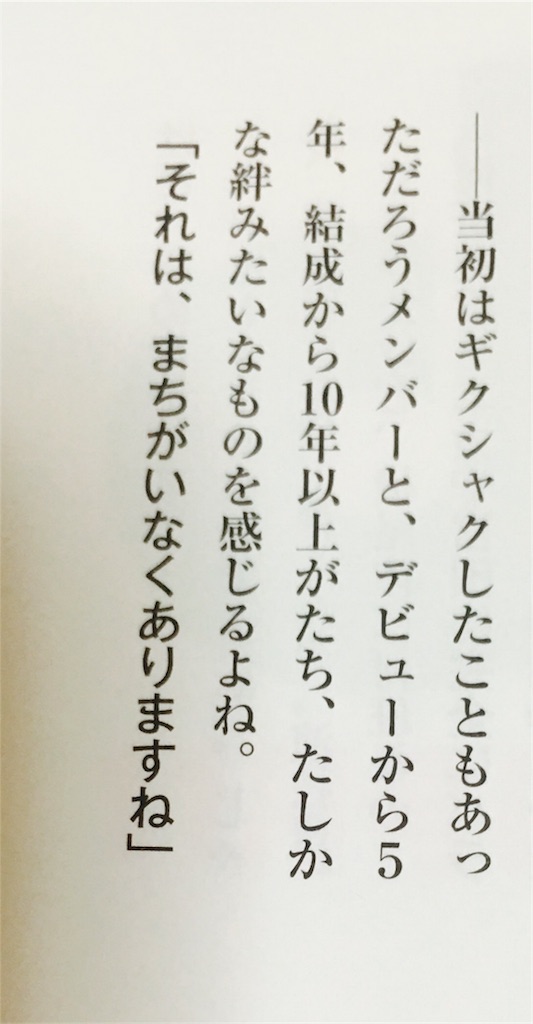 ――当初はギクシャクしたこともあっ
ただろうメンバーと、デビューから5
年、結成から10年以上がたち、たしか
な絆みたいなものを感じるよね。
「それは、まちがいなくありますね」